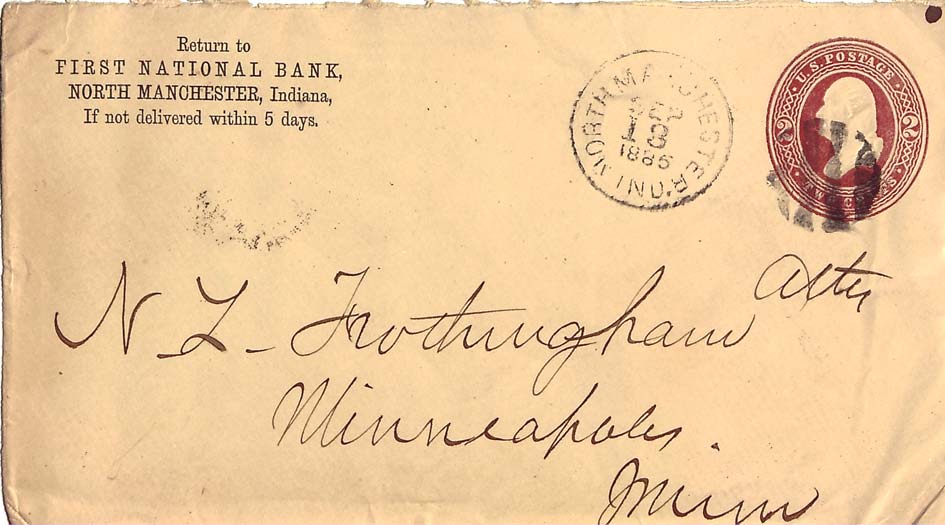 Return to
FIRST NATIONAL BANK,
NORTH MANCHESTER, Indiana,
If not delivered within 5 days.
NORTH MANCHESTER IND.
SEP
13
1886
U.S. POSTAGE
2 2
N L Frothingham Atty
Minneapolis.
Minn